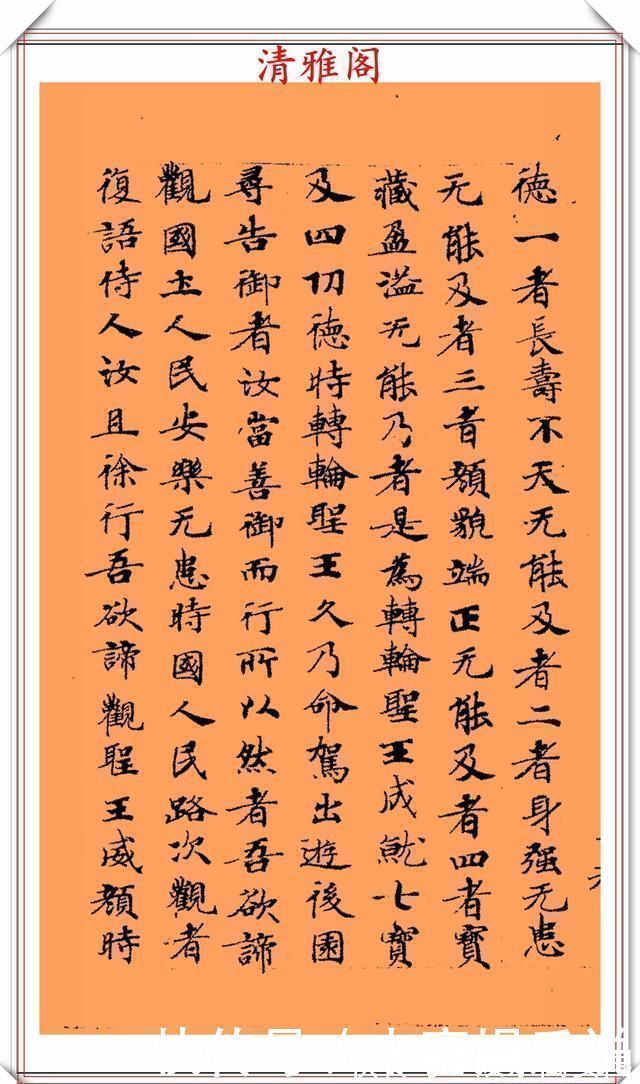 清雅阁
德一者長壽不夭无能及者二者身强无患
无能及者三者顏貌端正无能及者四者寶
藏盈溢无能乃者是為轉輪聖王成就七寶
及四㓛德時轉輪聖王久乃命駕出遊後園
尋告御者汝當善御而行所以然者吾欲諦
觀國土人民安樂无患時國人民路次觀者
復語侍人汝且徐行吾欲諦觀聖王威顏時